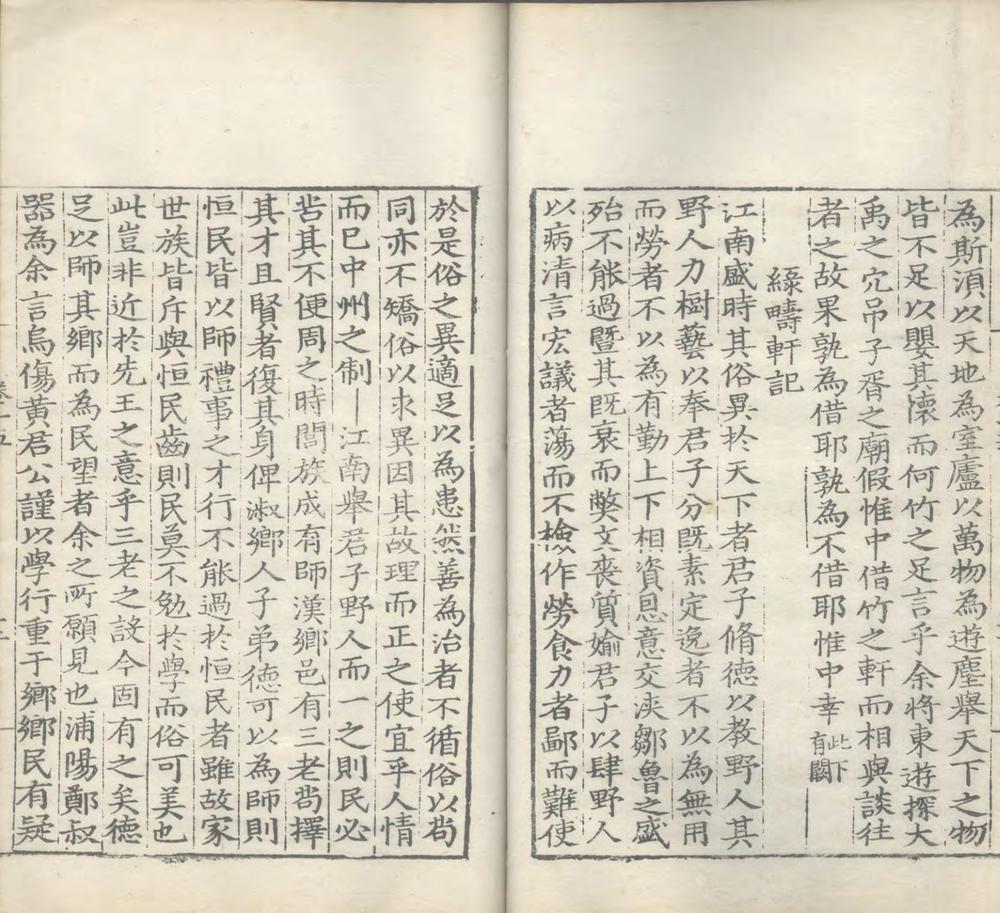 為斯湏以天地為室廬以萬物為遊塵舉天下之物
皆不足以嬰其懷而何竹之足言乎余將東遊探大
禹之穴吊子胥之廟假惟中借竹之軒而相與談往
者之故果孰為借耶孰為不借耶惟中幸此下有闕
綠疇軒記
江南盛時其俗異扵天下者君子脩德以教野人其
野人力樹藝以奉君子分既素定逸者不以為無用
而勞者不以為有勤上下相資恩意交浹鄒魯之盛
殆不能過暨其既衰而弊文喪質媮君子以肆野人
以病清言宏議者蕩而不檢作勞食力者鄙而難使
於是俗之異適足以為患然善為治者不循俗以苟
同亦不矯俗以求異因其故理而正之使宜乎人情
而已中州之制一江南舉君子野人而一之則民必
苦其不便周之時閭族成有師漢鄉邑有三老尚擇
其才且賢者復其身俾淑鄉人子弟德可以為師則
恒民皆以師禮事之才行不能過扵恒民者雖故家
世族皆斥與恒民齒則民莫不勉扵學而俗可美也
此豈非近扵先王之意乎三老之設今固有之矣德
足以師其鄉而為民望者余之所願見也浦陽鄭叔
器為余言烏傷黃君公謹以學行重于鄉鄉民有疑